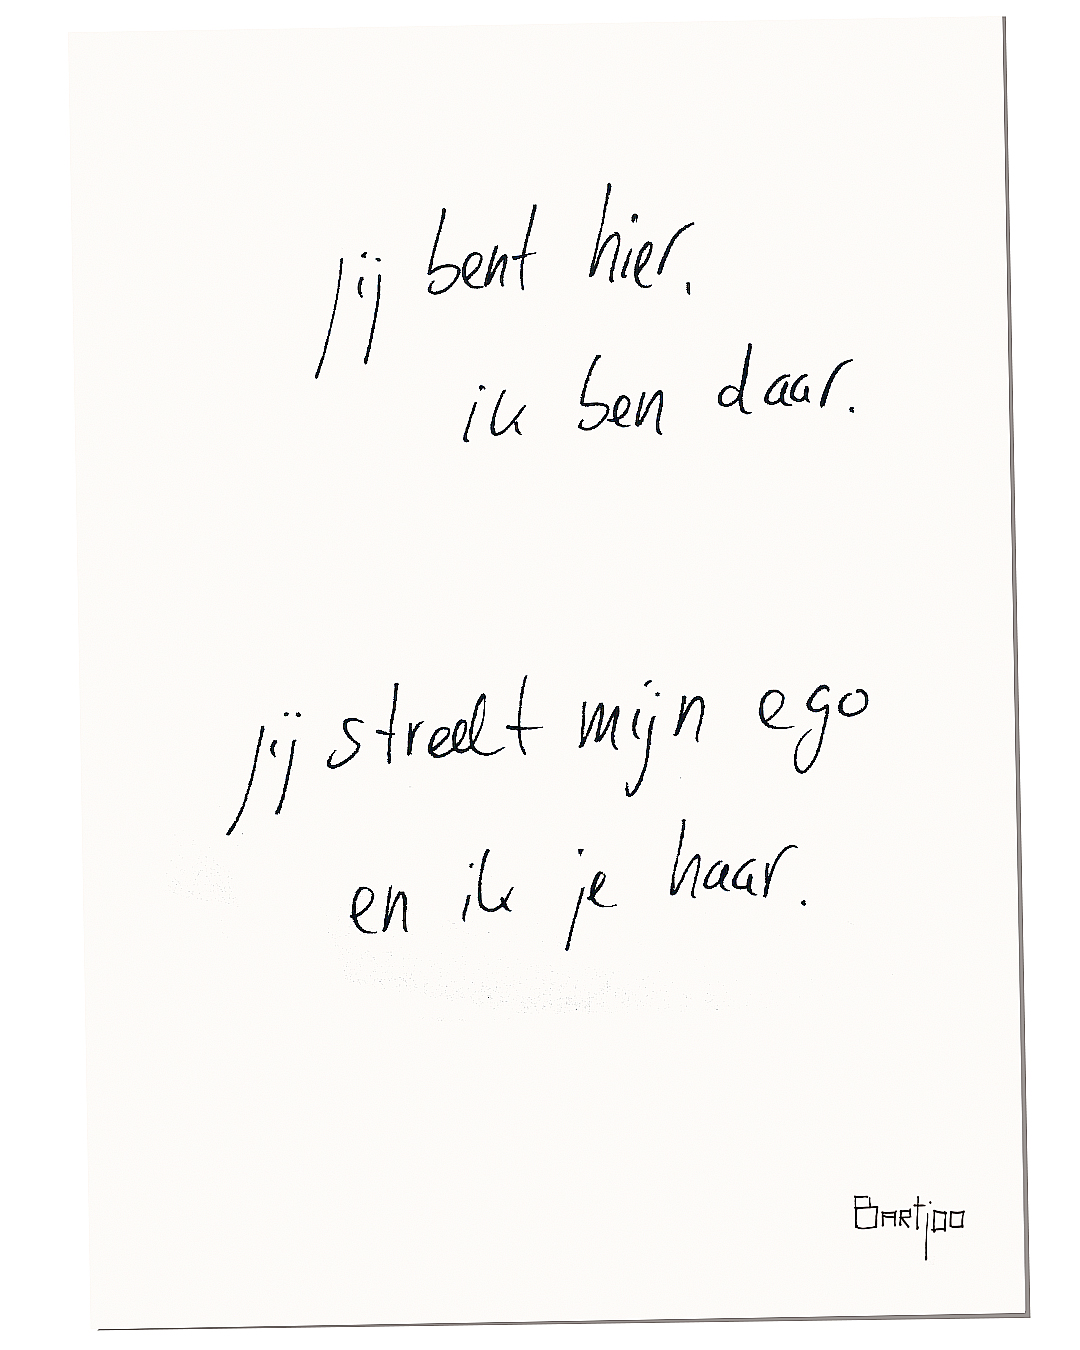 jij bent hier.
ik ben daar.
jij streelt mijn ego
en ik je haar.
Bartjoo